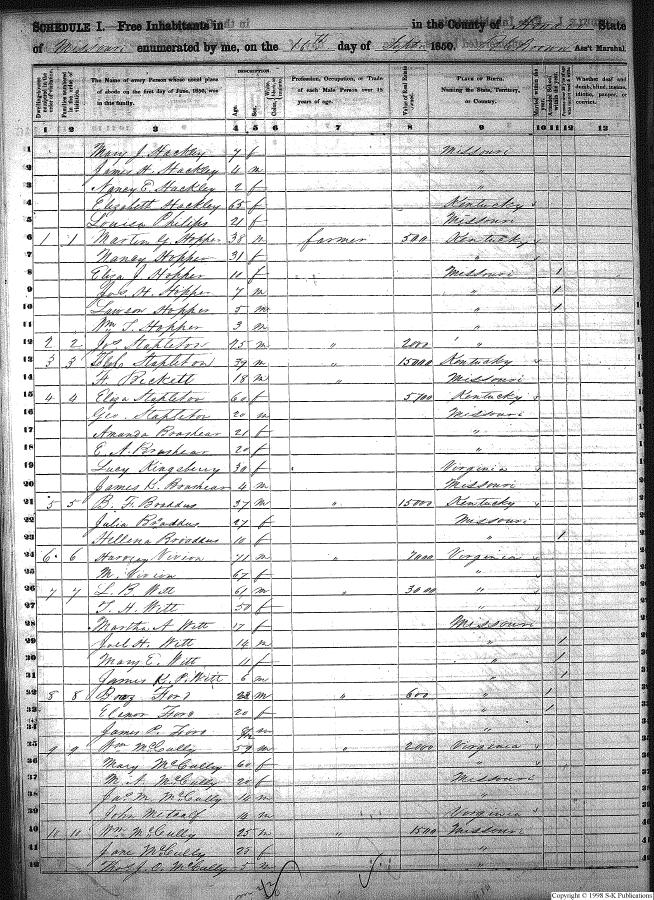 SCHEDULE I. Free Inhabitants in in the County of State
of Missouri enumerated by me, on the 16th day of Sept 1850. Brown Ass't Marshal
Dwelling-houses numbered in the order of visitation.
Families numbered in the order of visitation.
The Name of every Person whose usual place of abode on the first day of June, 1850, was in this family.
DESCRIPTION.
Age.
Sex.
Color.
Profession, Occupation, or Trade of each Male Person over 15 years of age.
Value of Real Estate owned.
PLACE OF BIRTH. Naming the State, Territory, or Country.
Married within the year.
Whether deaf and dumb, blind, insane, idiotic, pauper, or convict.
1 2 3 4 5 6 7 8 9 10 11 12 13
1 Mary J. Hackley 7 f Missouri
2 James H. Hackley 4 m "
3 Nancy E. Hackley 2 f "
4 Elizabeth Hackley 65 f Kentucky
5 Louisa Philips 21 f Missouri
6 1 1 Martin G. Hopper 38 m farmer 500 Kentucky
7 Nancy Hopper 31 f "
8 Eliza J. Hopper 11 f Missouri 1
9 Jas. H. Hopper 7 m " 1
10 Lawson Hopper 5 m " 1
11 Wm T. Hopper 3 m "
12 2 2 Jos Stapleton 25 m " 2000 "
13 3 3 Stapleton 39 m " 15000 Kentucky
14 H. Beckett 18 m " Missouri
15 4 4 Eliza Stapleton 60 f 5700 Kentucky
16 Geo. Stapleton 20 m Missouri
17 Amanda Brashear 21 f "
18 E. A. Brashear 20 f "
19 Lucy Kingsberry 30 f Virginia
20 James H. 4 m Missouri
21 5 5 B. F. Broddus 37 m " 15000 Kentucky
22 Julia Broddus 27 f Missouri
23 Hellena Broddus 10 f " 1
24 6 6 Harvey Vivion 71 m " 7000 Virginia
25 M. Vivion 67 f "
26 7 7 L. B. Witt 61 m " 3000 "
27 T. H. Witt 50 f "
28 Martha A. Witt 17 f Missouri
29 Joel H. Witt 14 m " 1
30 Mary E. Witt 11 f " 1
31 James H. P. Witt 6 m " 1
32 8 8 Boaz Ford m " 600 " 1
33 Elenor Ford 20 f " 1
34 James P. Ford m "
35 9 9 Wm McCully 59 m " 2000 Virginia
36 Mary McCully 60 f "
37 M. A. McCully 20 f Missouri
38 Jas. M. McCully m "
39 John Metcalf m Virginia
40 10 10 Wm McCully 25 m " 1500 Missouri
41 Jane McCully 25 f "
42 C. McCully 5 m "
Copyright © 1998 S-K Publications